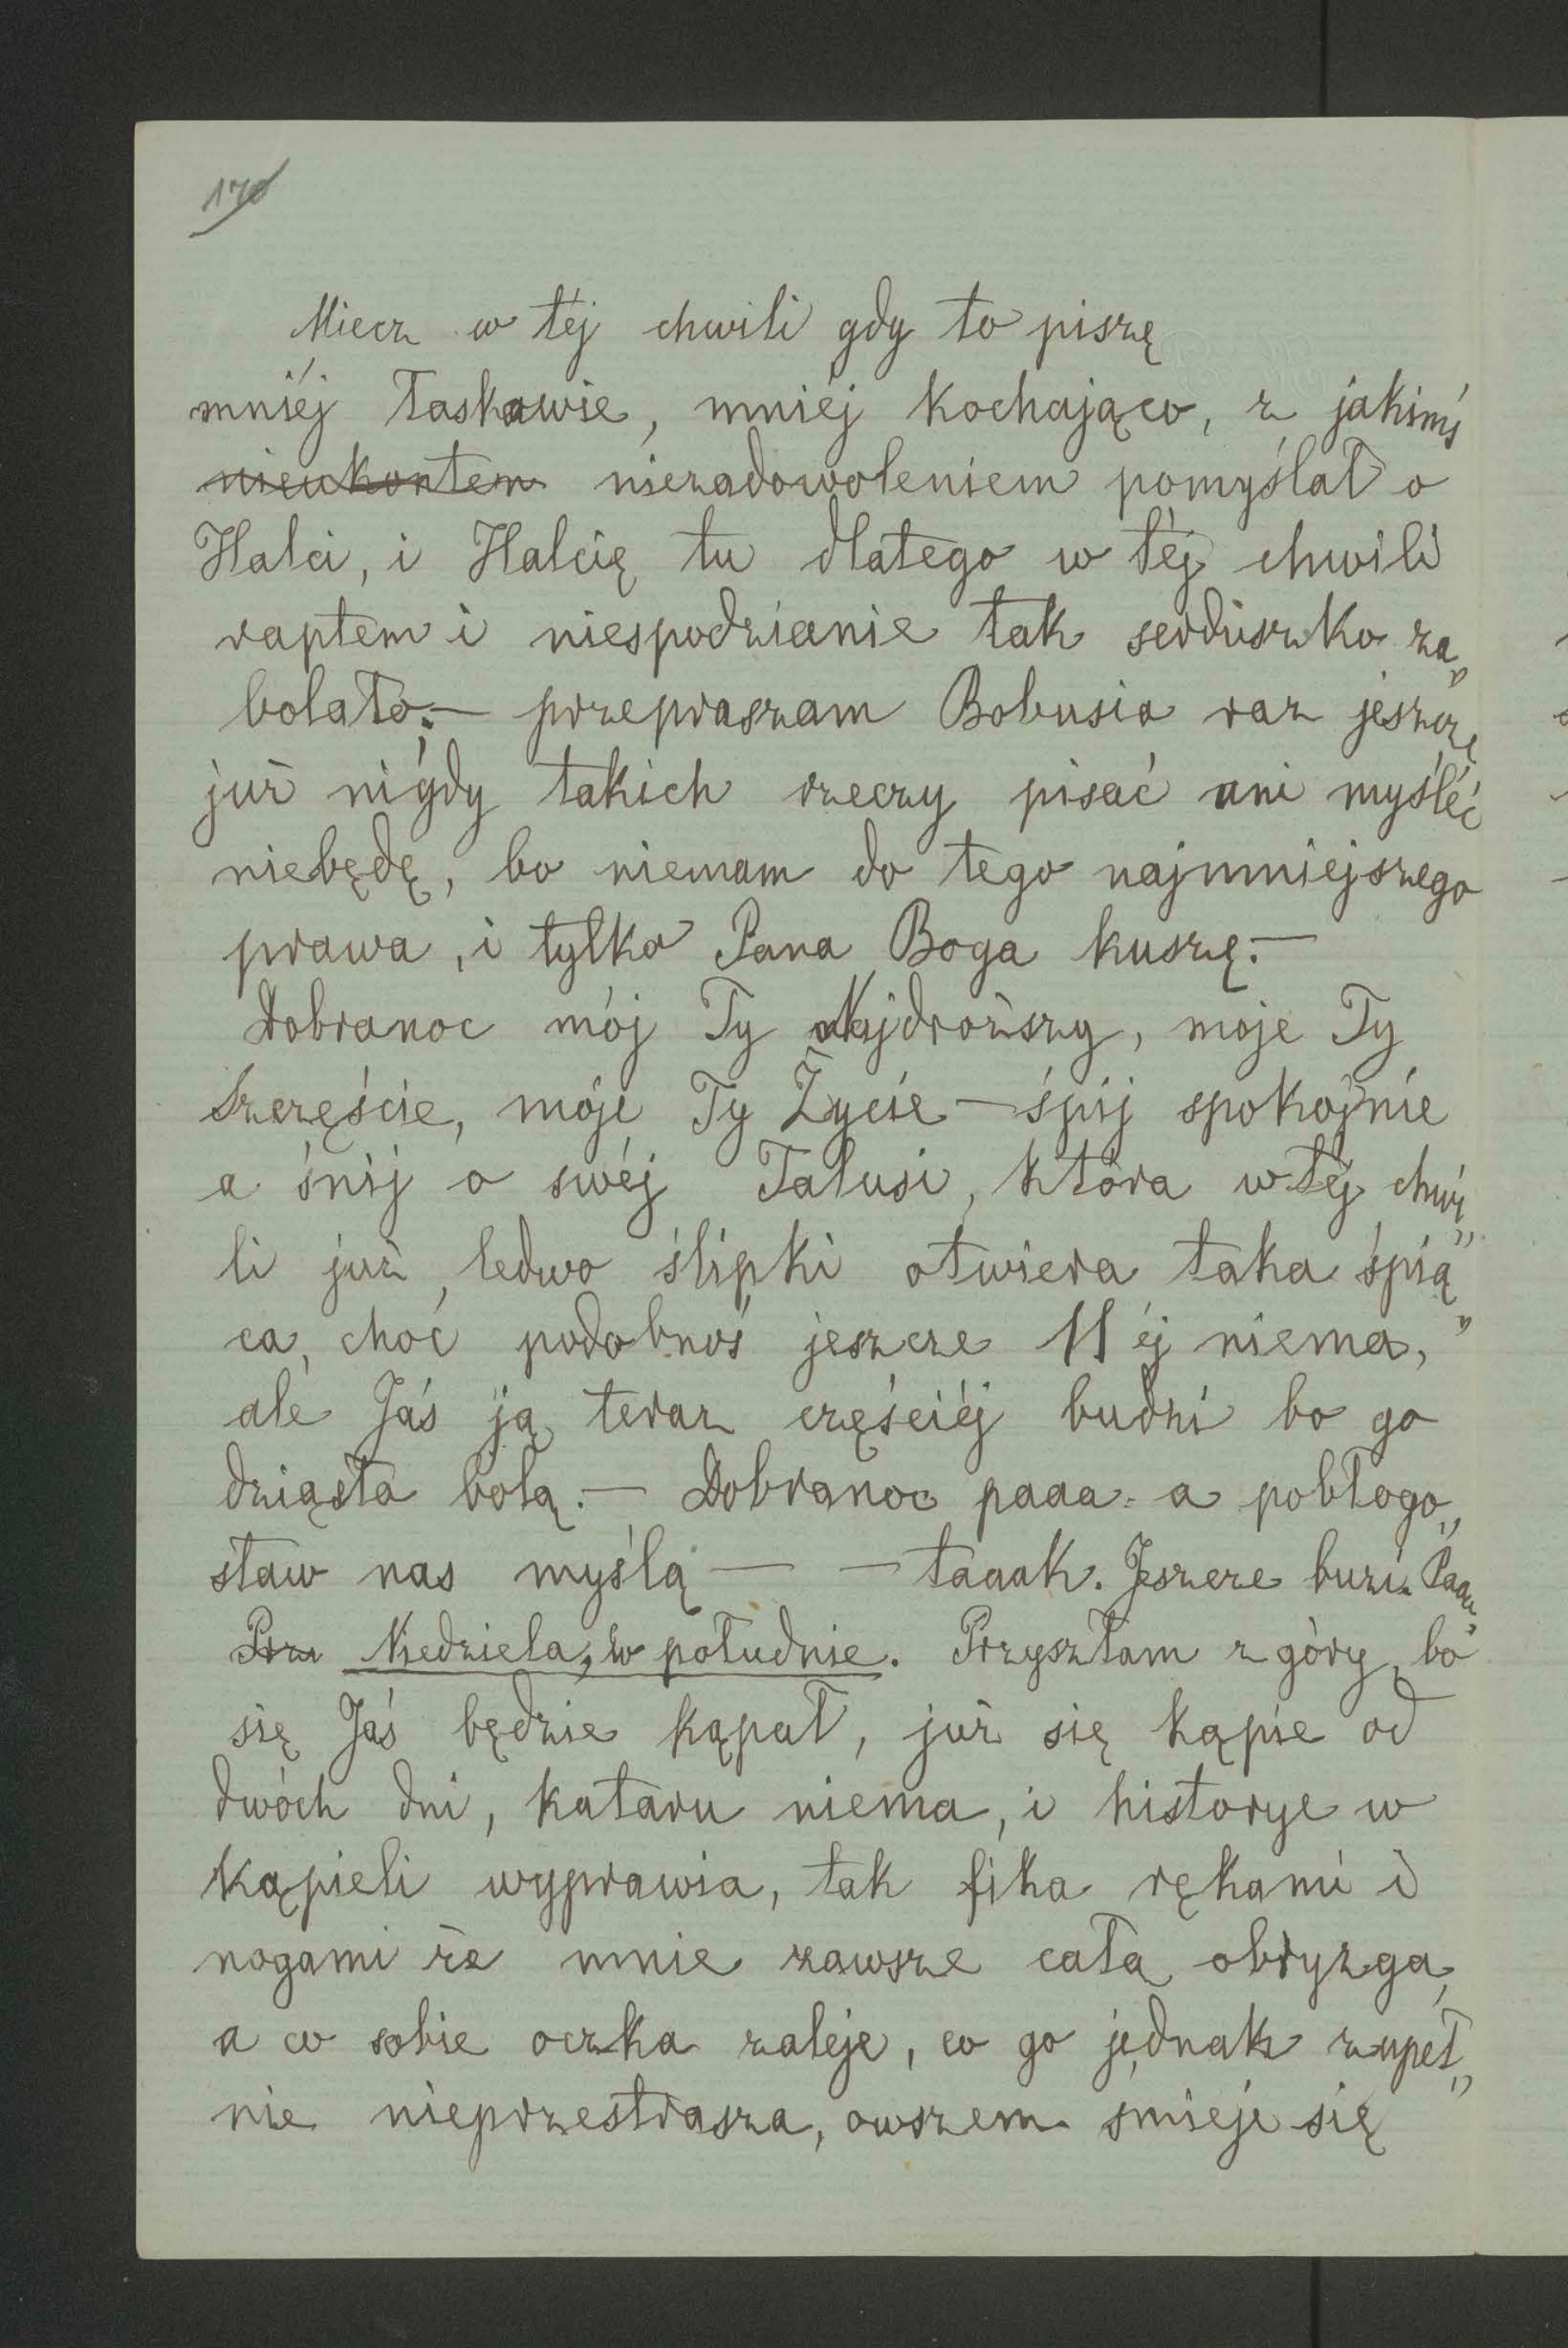 170
Miecz w téj chwili gdy to piszę
mniéj łaskawie, mniéj kochająco, z jakimś
nieukontem niezadowoleniem pomyślał o
Halci, i Halcię tu dlatego w téj chwili
raptem i niespodzianie tak serduszko za„
bolało.— przepraszam Bobusia raz jeszcze
już nigdy takich rzeczy pisać ani myśléć
niebędę, bo niemam do tego najmniejszego
prawa, i tylko Pana Boga kuszę.—
Dobranoc mój Ty Najdroższy, moje Ty
Szczęście, moje Ty Życie — śpij spokojnie
a śnij o swéj Talusi, która w téj chwi„
li już ledwo ślipki otwiera taka śpią„
ca, choć podobnoś jeszcze 11 éj niema,
ale Jaś ją teraz częściéj budzi bo go
dziąsła bolą.— Dobranoc paaa- a pobłogo„
sław nas myślą — — taaak. Jeszcze buzi. Paa„
Prz Niedziela, w południe. Przyszłam z góry, bo
się Jaś będzie kąpał, już się kąpie od
dwóch dni, kataru niema, i historye w
kąpieli wyprawia, tak fika rękami i
nogami że mnie zawsze całą obryzga,
a co sobie oczka zaleje, co go jednak zupeł„
nie nieprzestrasza, owszem śmieje się